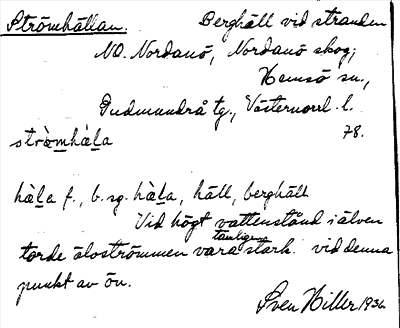 Strömhällan. Berghäll vid stranden
NO. Nordanö, Nordanö skog;
Hemsö sn.,
Gudmundrå tg., Västernorrl. l.
strö̀mhàl̲a 78.
hàl̲a f., b. sg. hàl̲a, häll, berghäll.
Vid högt vattenstånd i älven
torde älvströmmen vara tämligen stark vid denna
punkt av ön.
Sven Hiller 1936.